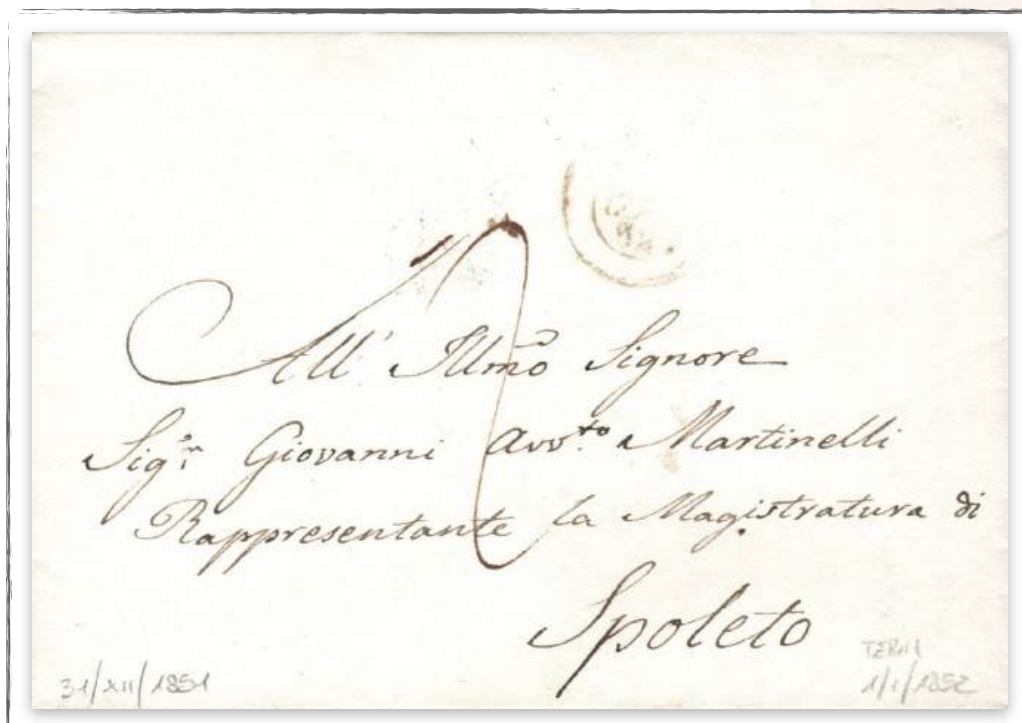 All' Illmo Signore
Sigr. Giovanni Avvto. Martinelli
Rappresentante la Magistratura di
Spoleto
31/XII/1851
TERNI
1/1/1852